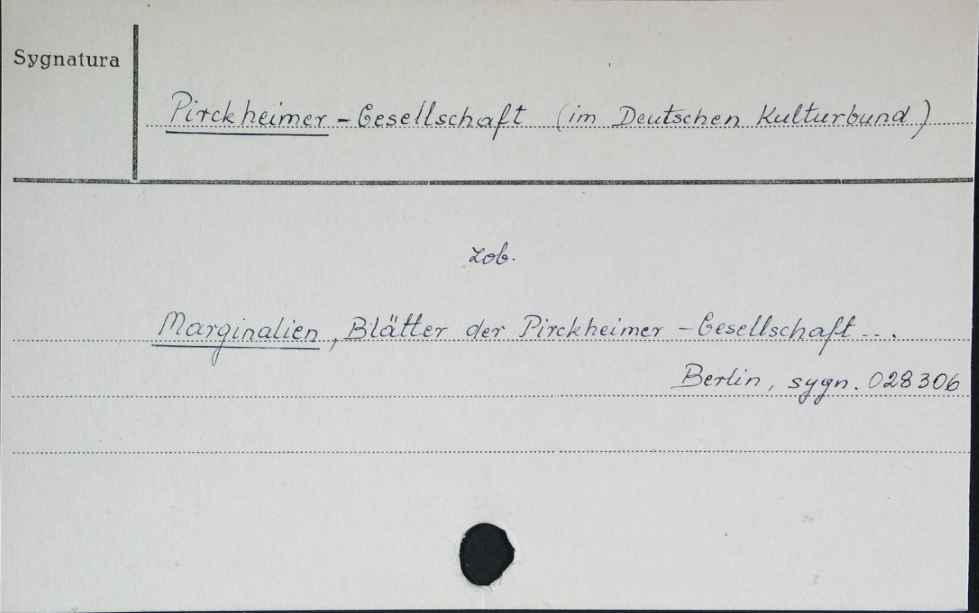 Sygnatura
Pirckheimer - Gesellschaft (im Deutschen Kulturbund)
zob.
Marginalien, Blätter der Pirckheimer - Gesellschaft ...
Berlin, sygn. 028306